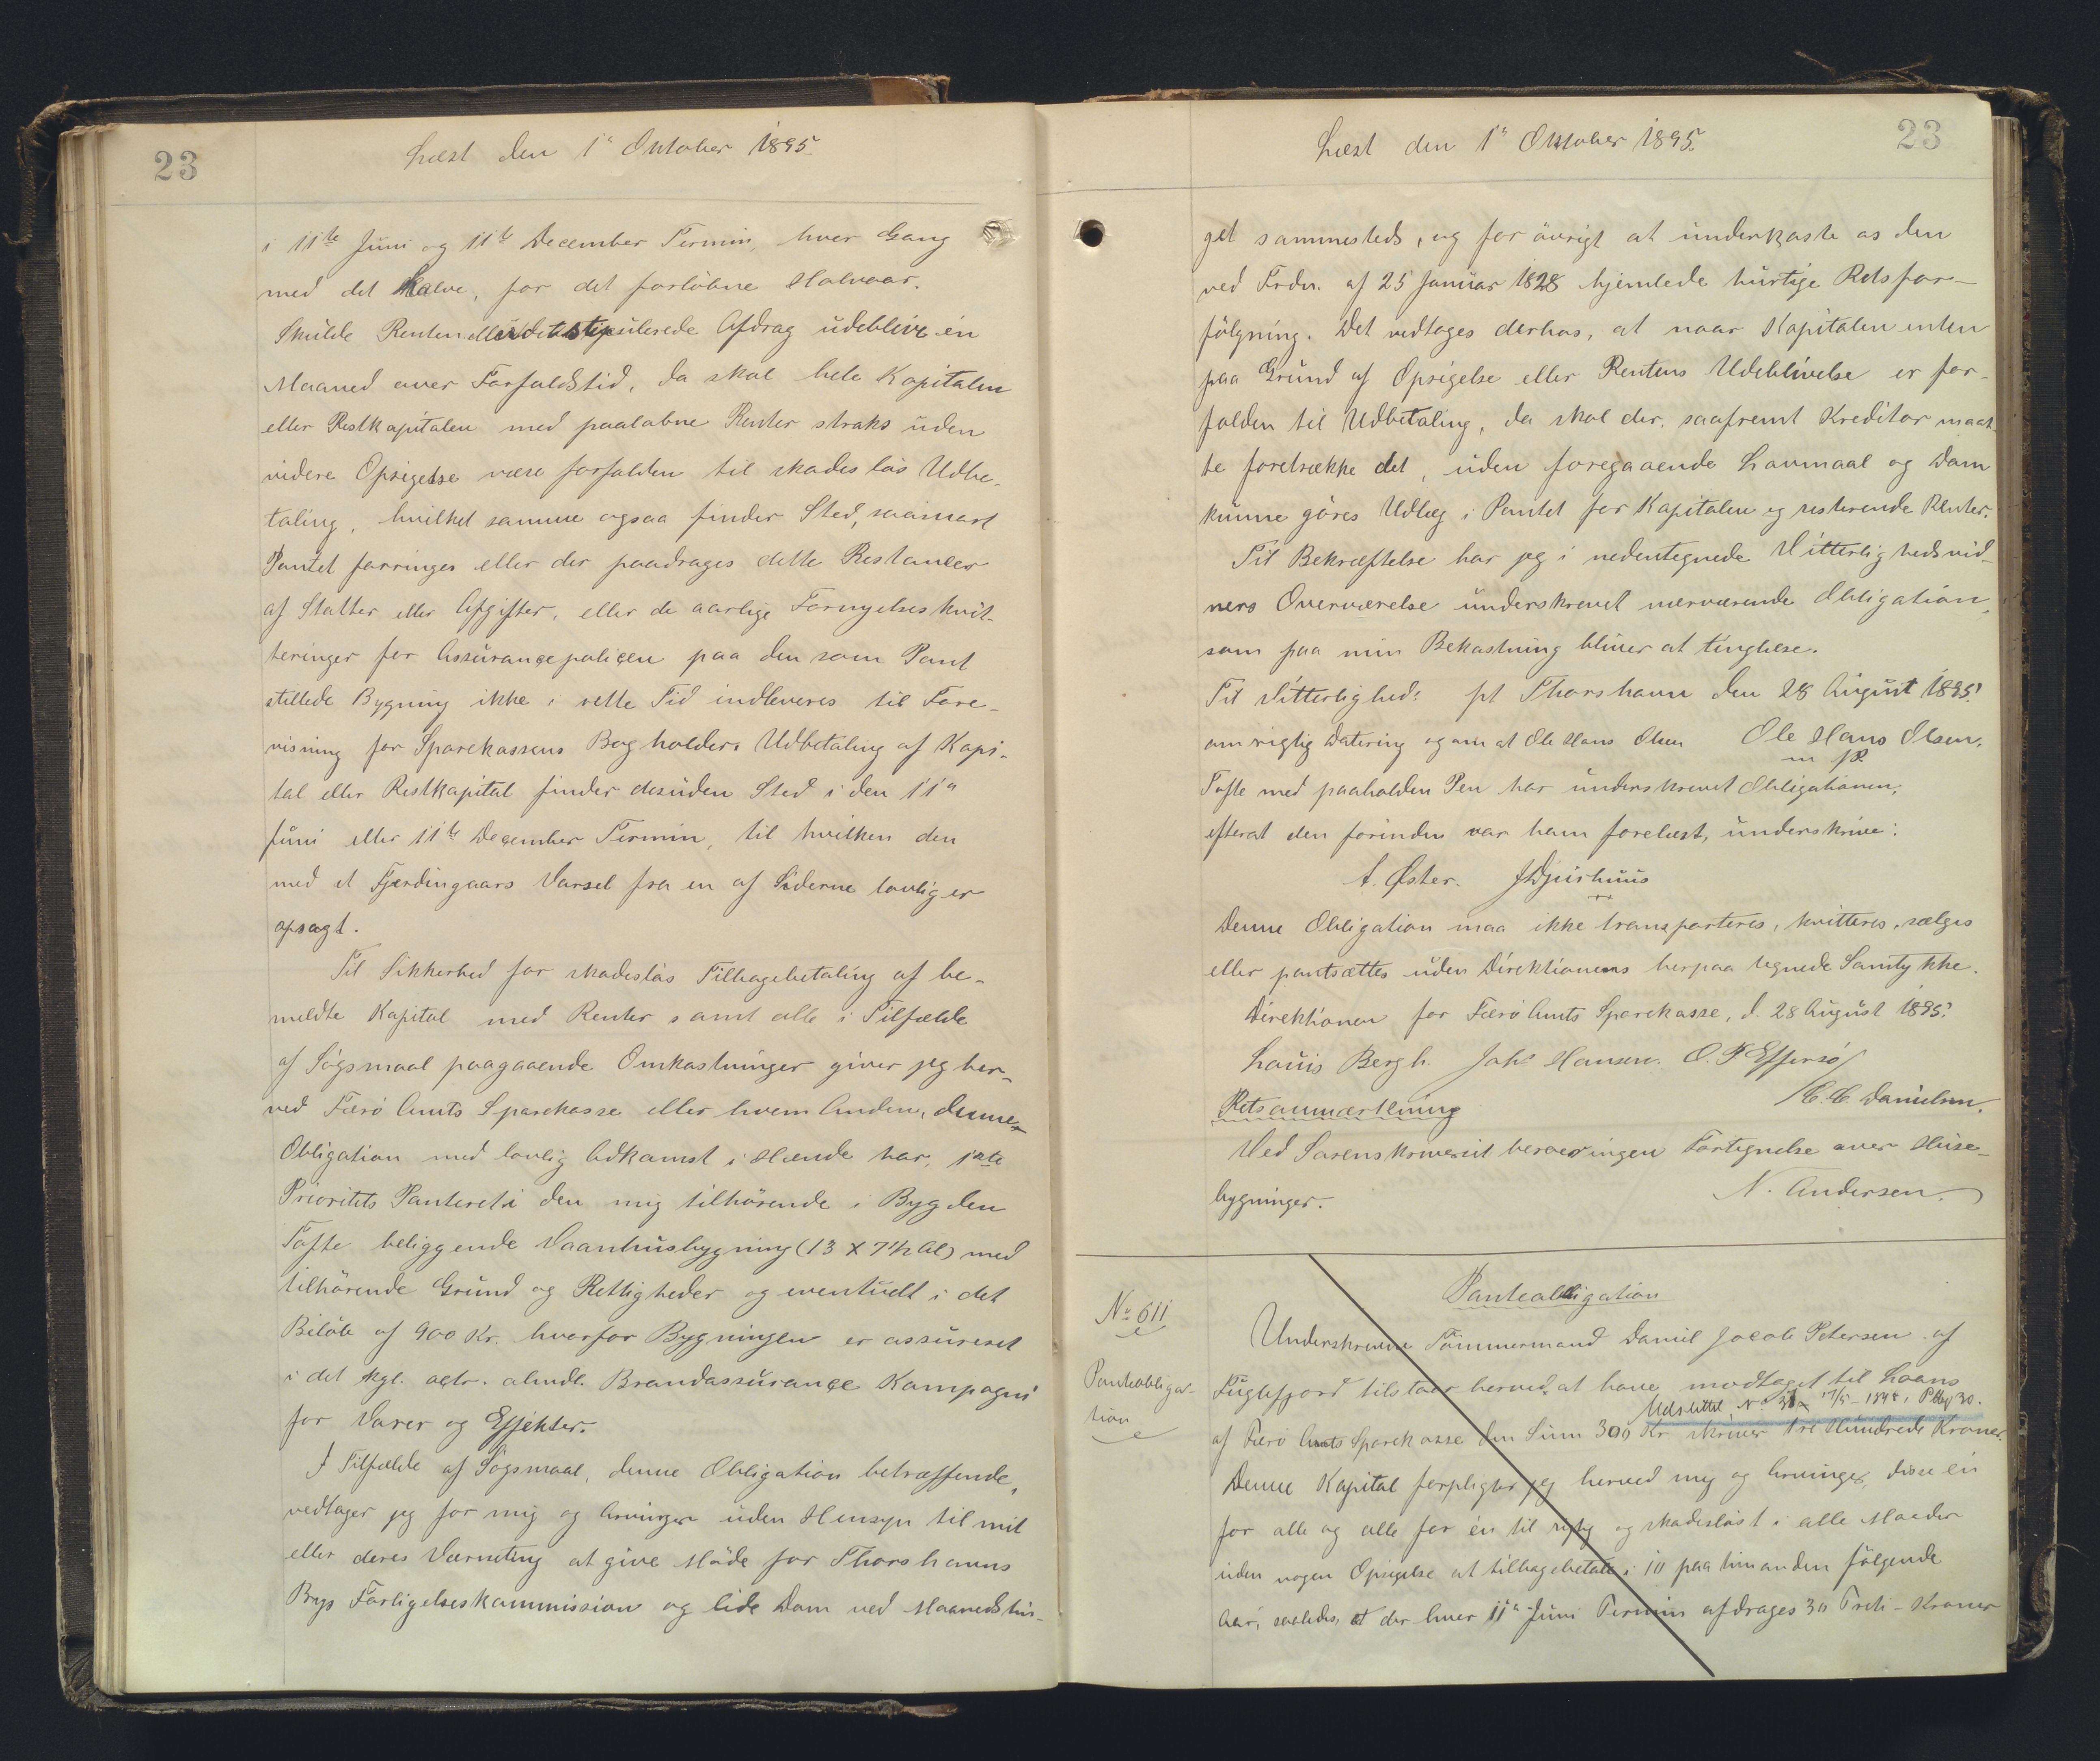 23
Læst den 1ª Oktober 1895.
i 11te Juni og 11te December Termin, hver Gang
med det Halve, for det forløbne Halvaar.
Skulde Renten eller det stipulerede Afdrag udeblive én
Maaned over Forfaldstid, da skal hele Kapitalen
eller Restkapitalen med paaløbne Renter straks uden
videre Opsigelse være forfalden til skadesløs Udbe-
taling, hvilket samme ogsaa finder Sted, saasnart
Pantet forringes eller der paadrages dette Restancer
af Skatter eller Afgifter, eller de aarlige Fornyelseskvit-
teringer for Assurancepolicen paa den som Pant
stillede Bygning ikke i rette Tid indleveres til Fore-
visning for Sparekassens Bogholder. Udbetaling af Kapi-
tal eller Restkapital finder desuden Sted i den 11ª
Juni eller 11te December Termin, til hvilken den
med et Fjerdingaars Varsel fra en af Siderne lovlig er
opsagt.
Til Sikkerhed for skadesløs Tilbagebetaling af be-
meldte Kapital med Renter samt alle i Tilfælde
af Søgsmaal paagaaende Omkostninger giver jeg her-
ved Færø Amts Sparekasse eller hvem Anden, denne
Obligation med lovlig Adkomst i Hænde har, 1ste
Prioritets Panteret i den mig tilhørende i Bygden
Tofte beliggende Vaanhusbygning (13 x 7 1/2 Al) med
tilhørende Grund og Rettigheder og eventuelt i det
Beløb af 900 Kr. hvorfor Bygningen er assureret
i det kgl. octr. almdl. Brandassurance Kompagni
for Varer og Effekter.
I Tilfælde af Søgsmaal, denne Obligation betræffende,
vedtager jeg for mig og Arvinger uden Hensyn til mit
eller deres Værneting at give Møde for Thorshavns
Bys Forligelseskommission og lide Dom ved Maanedstin-
23
Læst den 1ª Oktober 1895.
get sammesteds, og for øvrigt at underkaste os den
ved Frdn. af 25 Januar 1828 hjemlede hurtige Retsfor-
følgning. Det vedtages derhos, at naar Kapitalen enten
paa Grund af Opsigelse eller Rentens Udeblivelse er for-
falden til Udbetaling, da skal der, saafremt Kreditor maat-
te foretrække det, uden foregaaende Lavmaal og Dom
kunne gøres Udlæg i Pantet for Kapitalen og resterende Renter.
Til Bekræftelse har jeg i nedentegnede Vitterlighedsvid-
ners Overværelse underskrevet nærværende Obligation,
som paa min Bekostning bliver at tinglæse.
Til Vitterlighed: pt Thorshavn den 28 August 1895.
om rigtig Datering og om at Ole Hans Olsen Ole Hans Olsen,
m. p. P.
Tofte med paaholden Pen har underskrevet Obligationen,
efterat den forinden var ham forelæst, underskrive:
A. Øster. J Djurhuus
Denne Obligation maa ikke transporteres, kvitteres, sælges
eller pantsættes uden Direktionens herpaa tegnede Samtykke.
Direktionen for Færø Amts Sparekasse, d. 28 August 1895.
Louis Bergh. Johs Hansen. O. F Effersø
/C. C Danielsen.
Retsanmærkning
Ved Sorenskriveriet beroer ingen Fortegnelse over Huse-
bygninger. N. Andersen.
No 611
Panteobliga-
tion
Panteobligation
Underskrevne Tømmermand Daniel Jacob Petersen af
Fuglefjord tilstaar herved at have modtaget til Laans
Udslettet No 17/5-1898, P 30.
af Færø Amts Sparekasse den Sum 300 Kr skriver Tre Hundrede Kroner.
Denne Kapital forpligter jeg herved mig og Arvinger, disse én
for alle og alle for én til rigtig og skadesløst i alle Maader
uden nogen Opsigelse at tilbagebetale i 10 paa hinanden følgende
Aar, saaledes, at der hver 11ª Juni Termin afdrages 30 Treti - Kroner